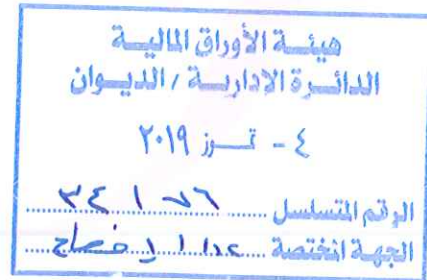 هيئة الأوراق المالية
الدائرة الإدارية / الديوان
٤ - تموز ٢٠١٩
الرقم المتسلسل
الجهة المختصة الإفصاح